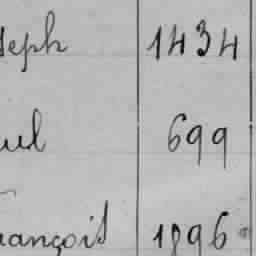 seph 1434
uel 699
rançois 1896